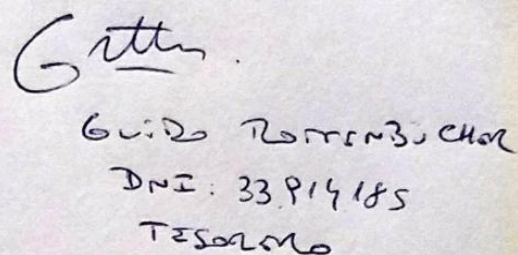 Guido Rottenbucher
DNI: 33.914.185
TESORERO